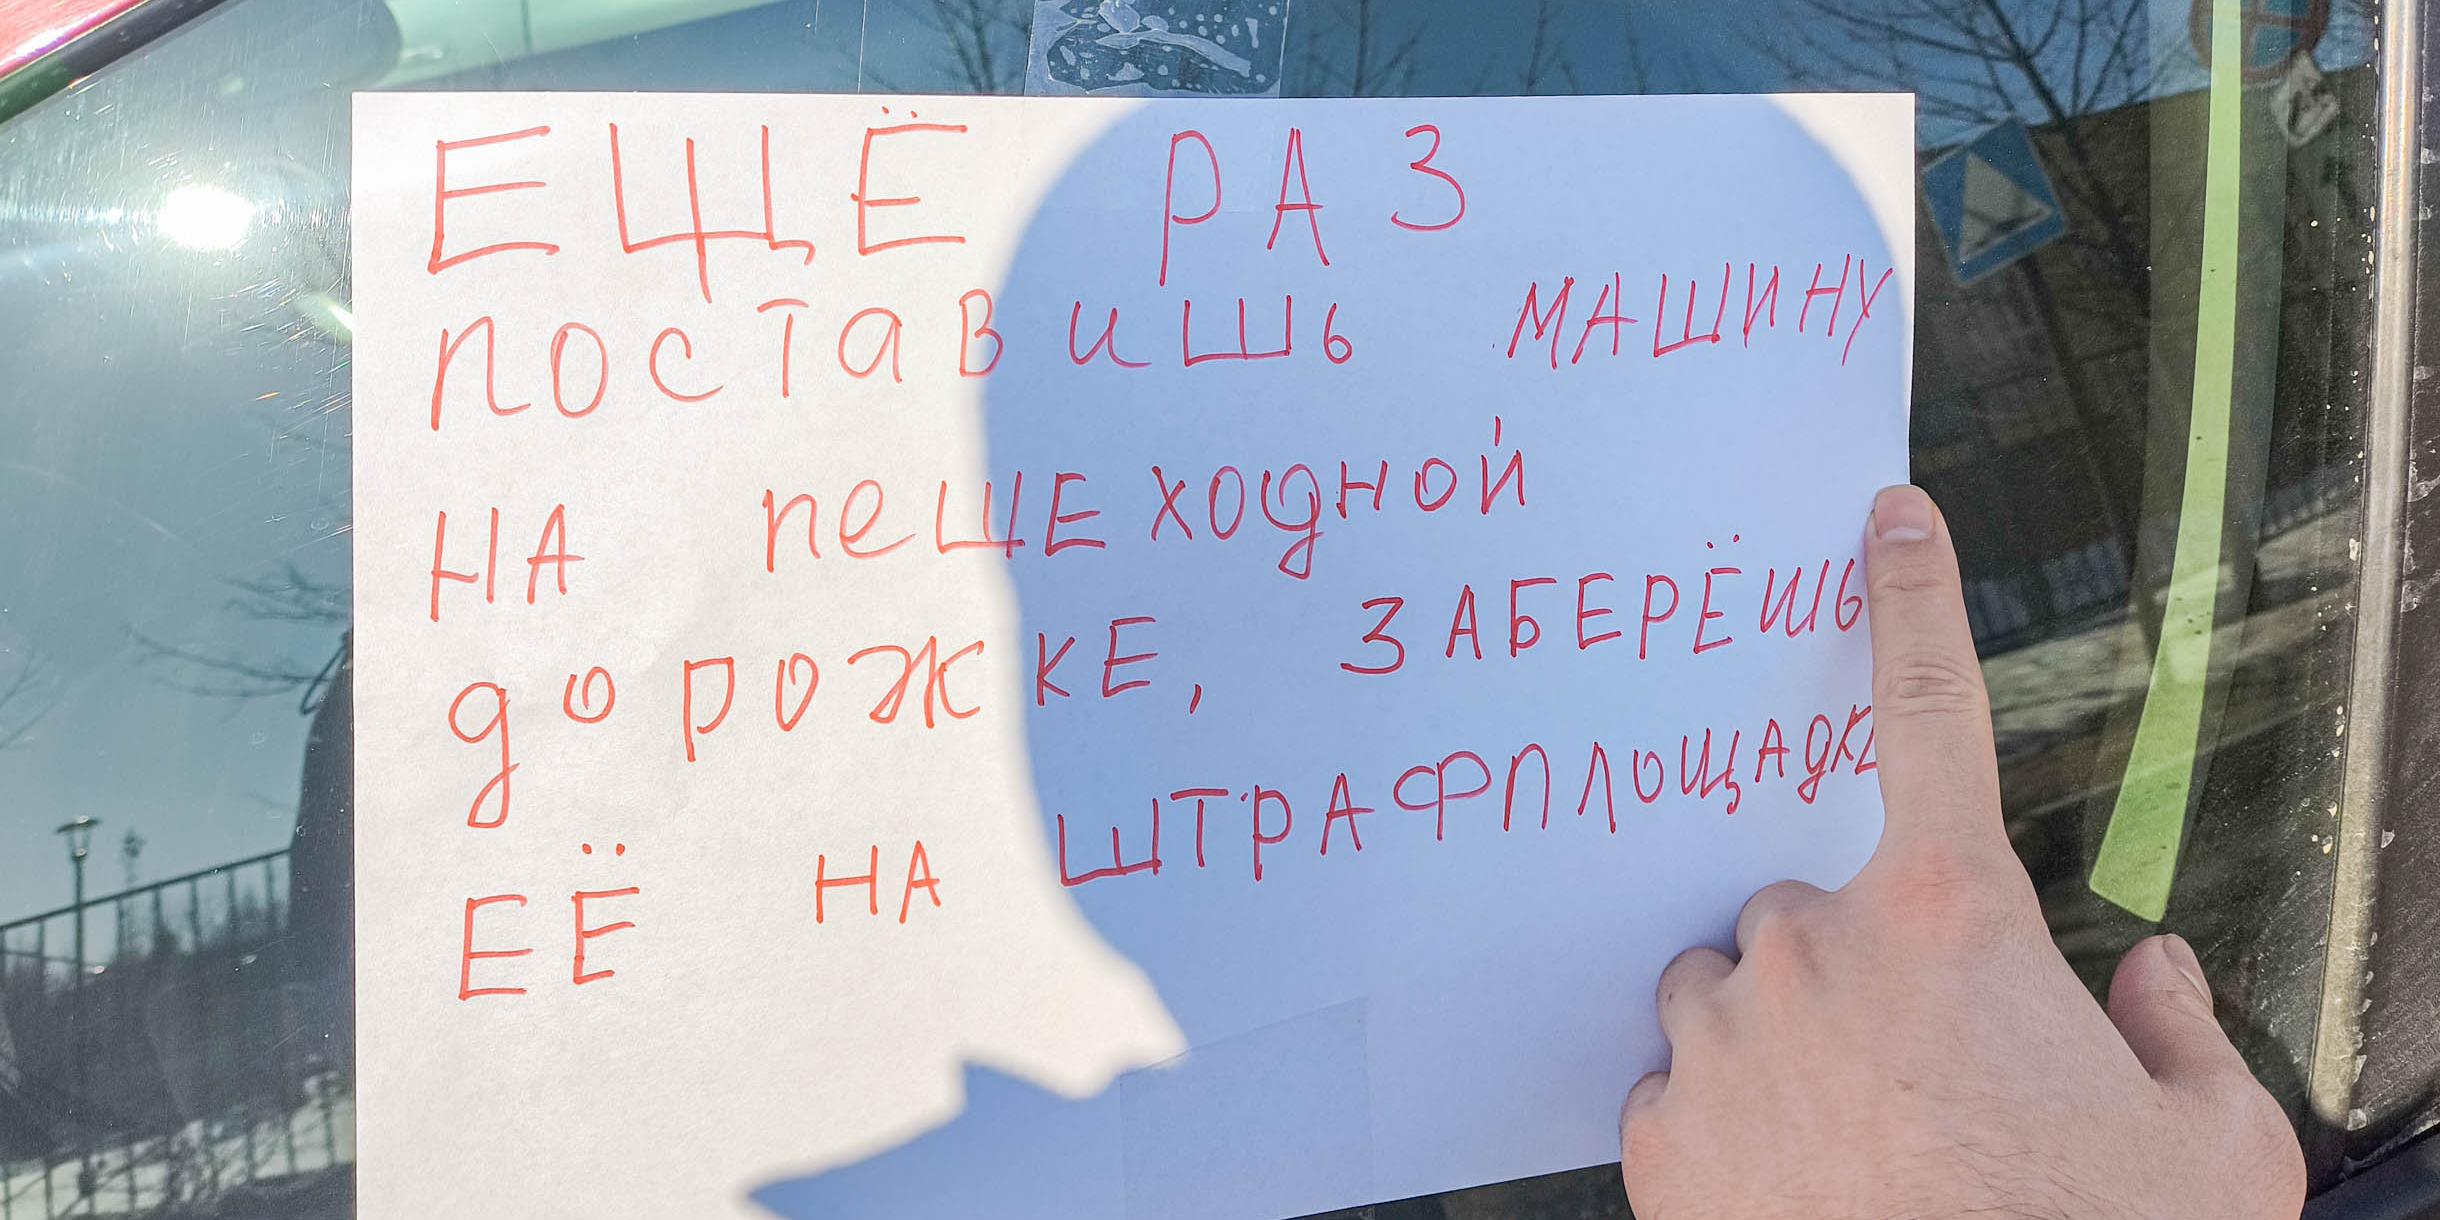 ЕЩЁ РАЗ
поставишь МАШИНУ
НА пеШЕХОДНОЙ
дОРОЖКЕ, ЗАБЕРЁШЬ
ЕЁ НА ШТРАФПЛОЩАДКЕ